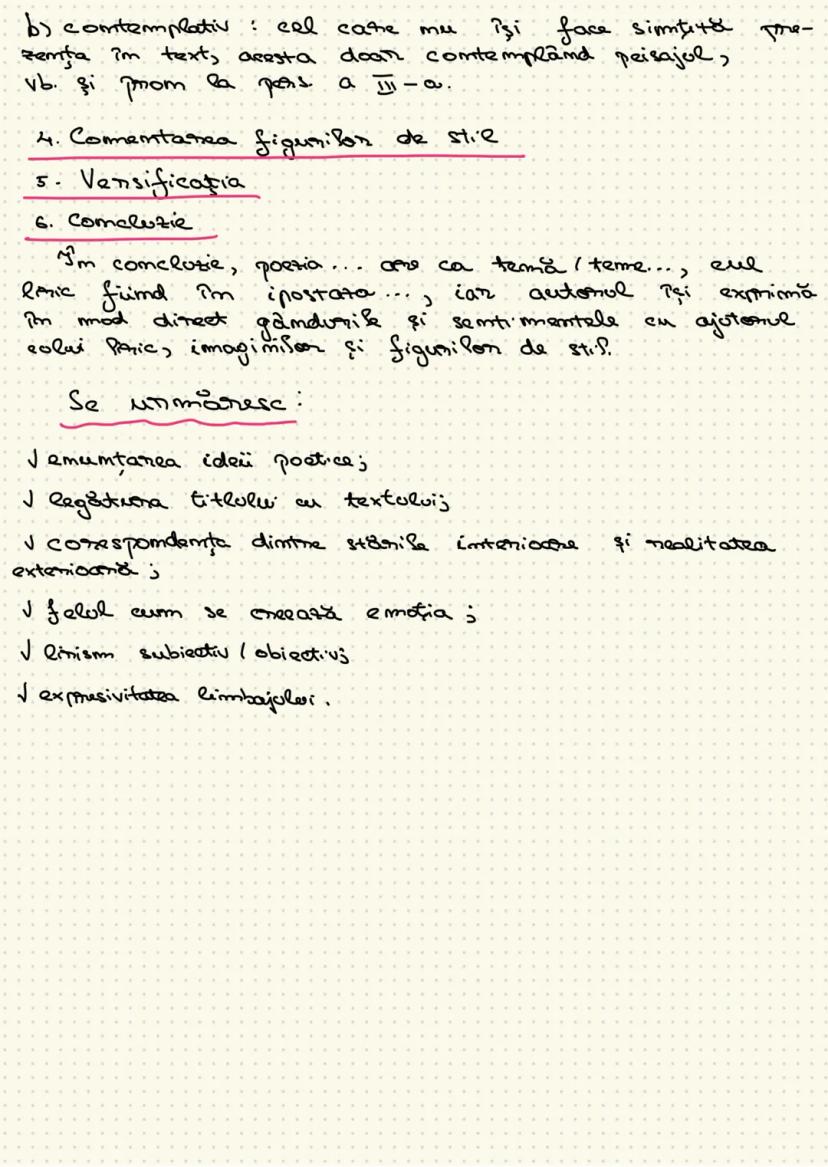 b) contemplativ : cel care nu își face simțită pre-
zența în text, acesta doar contemplând peisajul,
vb. și pron la pers a III-a.
4. Comentarea figurilor de stil
5. Versificația
6. Concluzie
În concluzie, poezia... are ca temă / teme..., eul
liric fiind în ipostaza..., iar autorul își exprimă
în mod direct gândurile și sentimentele cu ajutorul
eului liric, imaginilor și figurilor de stil.
Se urmăresc :
√ enunțarea ideii poetice;
√ legătura titlului cu textului;
√ corespondența dintre stările interioare și realitatea
exterioară ;
√ felul cum se creează emoția ;
√ lirism subiectiv / obiectiv;
√ expresivitatea limbajului.